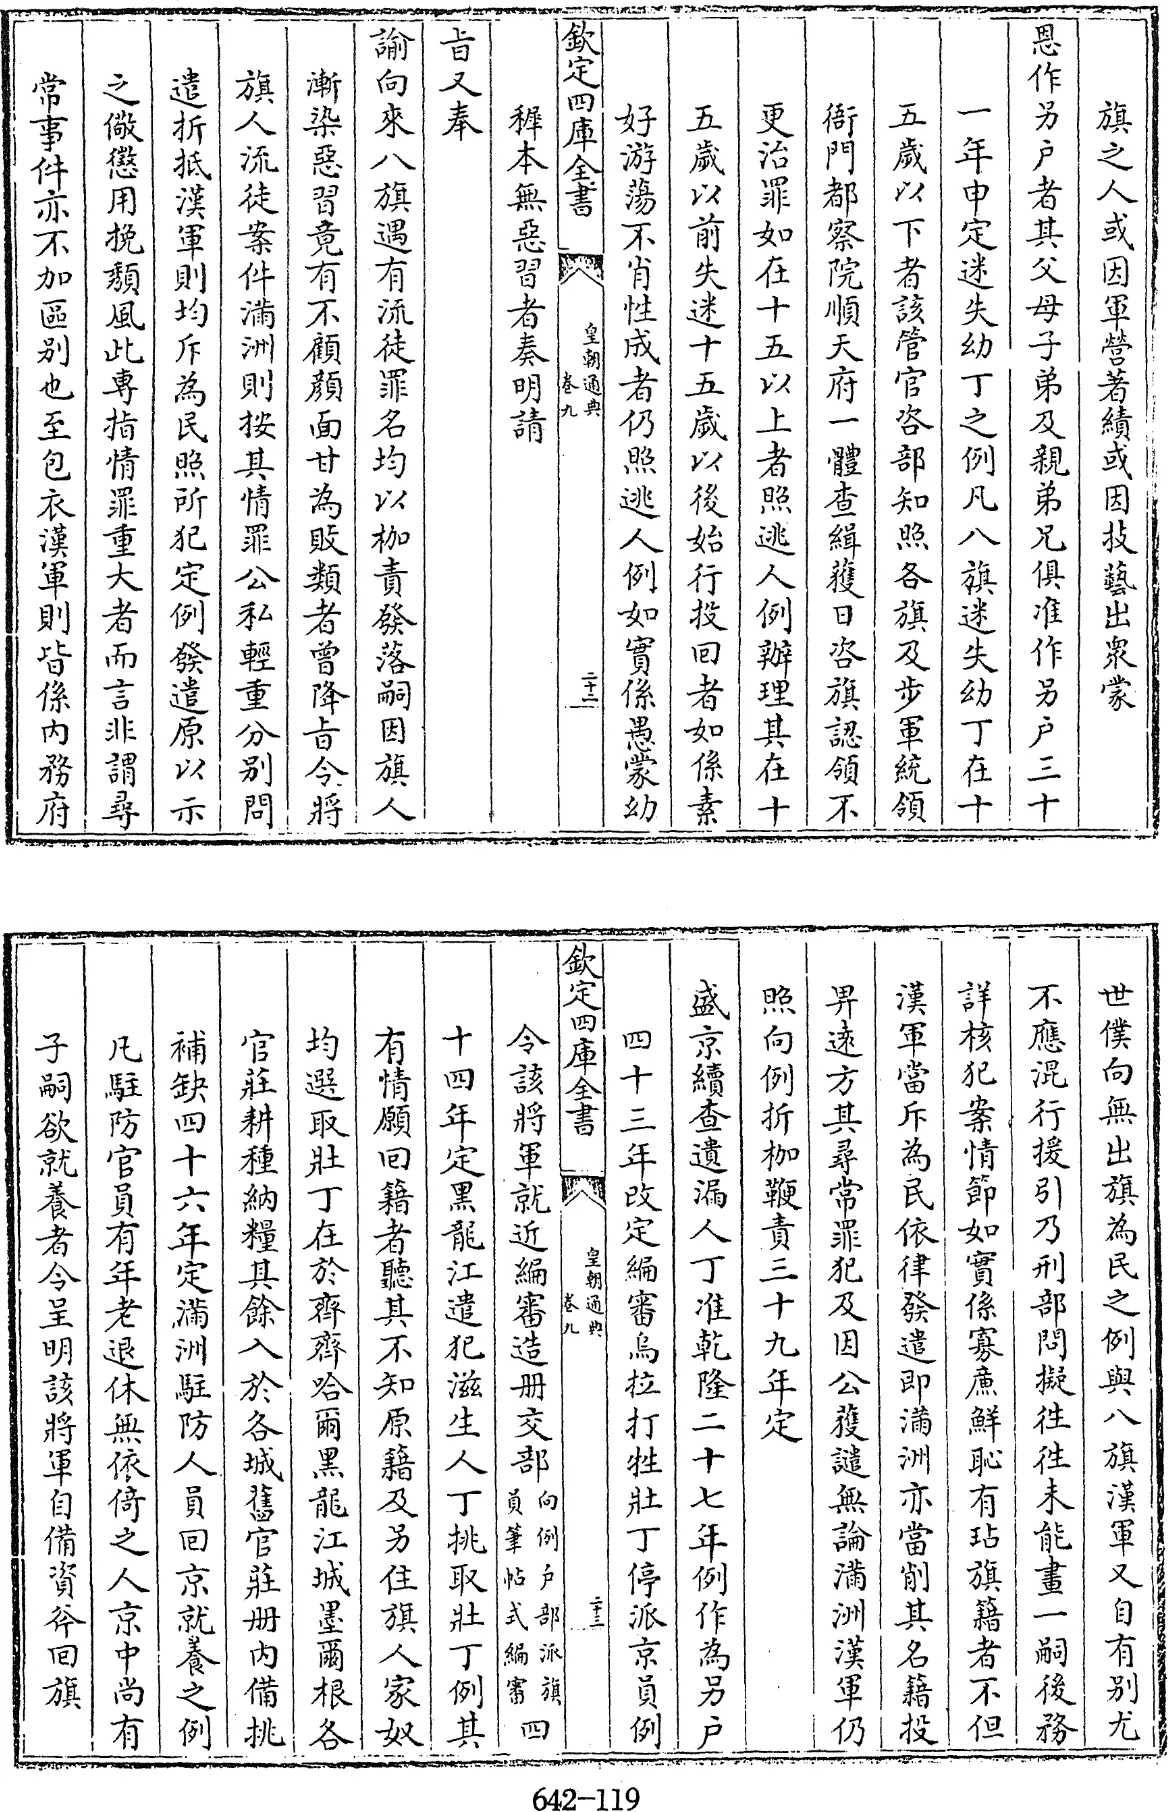 旗之人或因軍營著績或因技藝出衆蒙
恩作另户者其父母子弟及親弟兄俱准作另户三十
一年申定迷失幼丁之例凡八旗迷失幼丁在十
五歲以下者該管官咨部知照各旗及步軍統領
衙門都察院順天府一體查緝獲日咨旗認領不
更治罪如在十五以上者照逃人例辦理其在十
五歲以前失迷十五歲以後始行投回者如係素
好游蕩不肖性成者仍照逃人例如實係愚蒙幼
欽定四庫全書
皇朝通典
卷九
二十二
穉本無惡習者奏明請
旨又奉
諭向來八旗遇有流徒罪名均以枷責發落嗣因旗人
漸染惡習竟有不顧顔面甘為敗類者曾降旨令將
旗人流徒案件滿洲則按其情罪公私輕重分别問
遣折抵漢軍則均斥為民照所犯定例發遣原以示
之儆懲用挽頽風此專指情罪重大者而言非謂尋
常事件亦不加區别也至包衣漢軍則皆係内務府
世僕向無出旗為民之例與八旗漢軍又自有别尤
不應混行援引乃刑部問擬徃徃未能畫一嗣後務
詳核犯案情節如實係寡廉鮮恥有玷旗籍者不但
漢軍當斥為民依律發遣即滿洲亦當削其名籍投
畀遠方其尋常罪犯及因公獲譴無論滿洲漢軍仍
照向例折枷鞭責三十九年定
盛京續查遺漏人丁准乾隆二十七年例作為另户
四十三年改定編審烏拉打牲壯丁停派京員例
欽定四庫全書
皇朝通典
卷九
二十三
令該將軍就近編審造册交部向例户部派旗員筆帖式編審四
十四年定黑龍江遣犯滋生人丁挑取壯丁例其
有情願回籍者聽其不知原籍及另住旗人家奴
均選取壯丁在於齊齊哈爾黑龍江城墨爾根各
官莊耕種納糧其餘入於各城舊官莊册内備挑
補缺四十六年定滿洲駐防人員回京就養之例
凡駐防官員有年老退休無依倚之人京中尚有
子嗣欲就養者令呈明該將軍自備資斧回旗
642-119